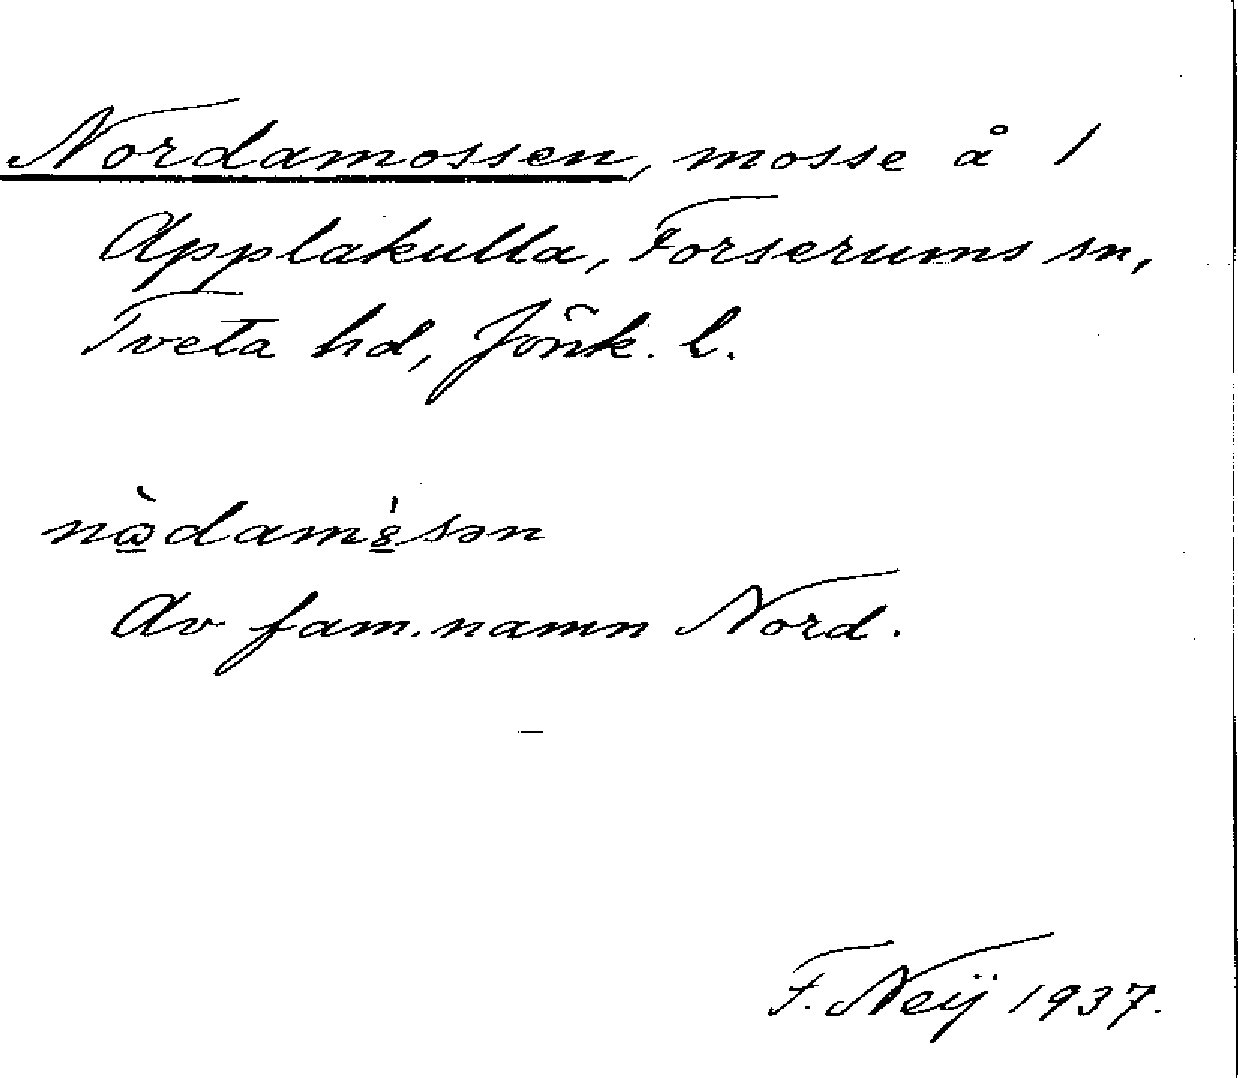 Nordamossen, mosse å 1
Applakulla, Forserums sn,
Tveta hd, Jönk. l.
Av fam.namn Nord.
F. Neij 1937.